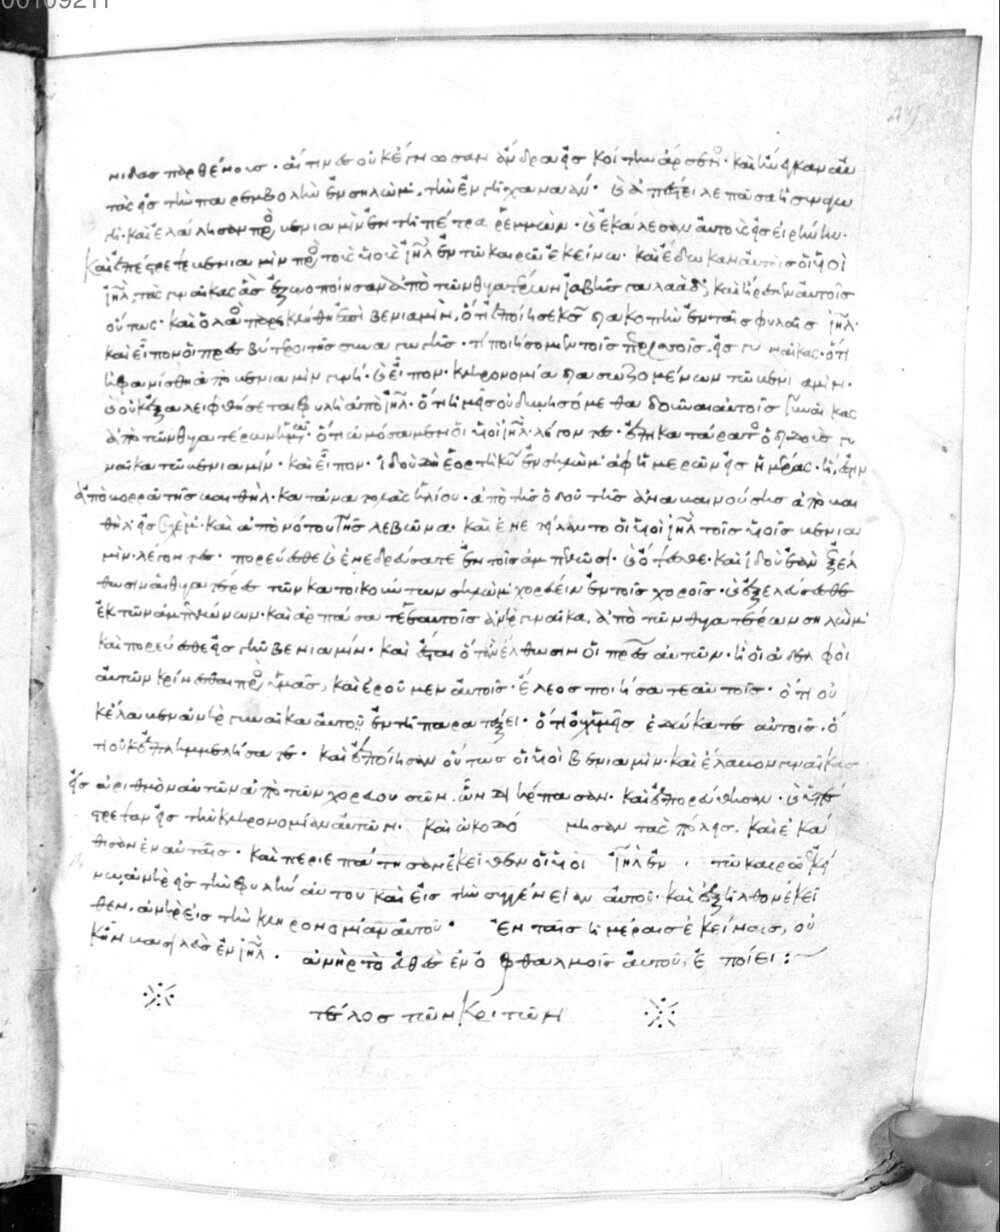 00109211
νιδας παρθένους. αἵτινες οὐκ ἔγνωσαν ἄνδρα εἰς κοίτην ἄρσενος. καὶ ἤνεγκαν αὐ
τὰς εἰς τὴν παρεμβολὴν ἐν σηλὼμ. τὴν ἐν γῆ χαναάν. καὶ ἀπέστειλε πᾶσα ἡ συναγω
γὴ. καὶ ἐλάλησαν πρὸς βενιαμὶν ἐν τῆ πέτρα ῥεμμών. καὶ ἐκάλεσαν αὐτοὺς εἰς εἰρήνην.
Καὶ ἐπέστρεψε βενιαμὶν πρὸς τοὺς υἱοὺς ἰηλ ἐν τῶ καιρῶ ἐκείνω. καὶ ἔδωκαν αὐτοῖς οἱ υἱοὶ
ἰηλ, τὰς γυναῖκας ἃς ἐζωοποίησαν ἀπὸ τῶν θυγατέρων ἰαβὴς γαλαάδ, καὶ ἤρεσεν αὐτοῖς
οὕτως. καὶ ὁ λαὸς παρεκλήθη ἐπὶ βενιαμὶν, ὅτι ἐποίησε κς διακοπὴν ἐν ταῖς φυλαῖς ἰηλ.
καὶ εἶπον οἱ πρεσβύτεροι τῆς συναγωγῆς. τί ποιήσομεν τοῖς περισσοῖς εἰς γυναῖκας. ὅτι
ἠφανίσθη ἀπὸ βενιαμὶν γυνή. καὶ εἶπον. κληρονομία διασωζομένων τῶ βενιαμίν.
καὶ οὐκ ἐξαλειφθήσεται φυλὴ ἀπὸ ἰηλ. ὅτι ἡμεῖς οὐ δυνησόμεθα δοῦναι αὐτοῖς γυναῖκας
ἀπὸ τῶν θυγατέρων ἡμῶν. ὅτι ὠμόσαμεν οἱ υἱοὶ ἰηλ λέγοντες. ἐπικατάρατος ὁ διδοὺς γυ
ναῖκα τῶ βενιαμίν. καὶ εἶπον. ἰδοὺ δὴ ἑορτὴ κυ ἐν σηλὼμ ἀφ ἡμερῶν εἰς ἡμέρας. ἥ ἐστιν
ἀπὸ βορρᾶ τῆς βαιθὴλ. κατὰ ἀνατολὰς ἡλίου. ἀπὸ τῆς ὁδοῦ τῆς ἀναβαινούσης ἀπὸ βαι
θὴλ εἰς συχέμ. καὶ ἀπὸ νότου τῆς λεβωνα. καὶ ἐνετείλαντο οἱ υἱοὶ ἰηλ τοῖς υἱοῖς βενια
μὶν. λέγοντες. πορεύεσθε καὶ ἐνεδρεύσατε ἐν τοῖς ἀμπελῶσι. καὶ ὄψεσθε. καὶ ἰδοὺ ἐὰν ἐξέλ
θωσιν αἱ θυγατέρες τῶν κατοικούντων σηλὼμ χορεύειν ἐν τοῖς χοροῖς. καὶ ἐξελεύσεσθε
ἐκ τῶν ἀμπελώνων. καὶ ἁρπάσατε ἑαυτοῖς ἀνὴρ γυναῖκα, ἀπὸ τῶν θυγατέρων σηλώμ
καὶ πορεύεσθε εἰς γῆν βενιαμίν. καὶ ἔσται ὅταν ἔλθωσιν οἱ πρες αὐτῶν. ἢ οἱ ἀδελφοὶ
αὐτῶν κρίνεσθαι πρὸς ὑμᾶς, καὶ ἐροῦμεν αὐτοῖς. ἔλεος ποιήσατε αὐτοῖς. ὅτι οὐ
κ ἔλαβεν ἀνὴρ γυναῖκα αὐτοῦ ἐν τῆ παρατάξει. ὅτι οὐχ ὑμεῖς ἐδώκατε αὐτοῖς. ὅ
τι οὐκ ἐπλημμελήσατε. καὶ ἐποίησαν οὕτως οἱ υἱοὶ βενιαμίν. καὶ ἔλαβον γυναῖκας
εἰς ἀριθμὸν αὐτῶν ἀπὸ τῶν χορευουσῶν. ὧν διήρπασαν. καὶ ἐπορεύθησαν. καὶ ὑπέ
στρεψαν εἰς τὴν κληρονομίαν αὐτῶν. καὶ ὠκοδό μησαν τὰς πόλεις. καὶ ἐκά
θισαν ἐν αὐταῖς. καὶ περιεπάτησαν ἐκεῖθεν οἱ υἱοὶ ἰηλ ἐν τῶ καιρῶ ἐκεί
νω, ἀνὴρ εἰς τὴν φυλὴν αὐτοῦ καὶ εἰς τὴν συγγένειαν αὐτοῦ. καὶ ἐξῆλθον ἐκεῖ
θεν. ἀνὴρ εἰς τὴν κληρονομίαν αὐτοῦ. Ἐν ταῖς ἡμέραις ἐκείναις, οὐ
κ ἦν βασιλεὺς ἐν ἰηλ. ἀνὴρ τὸ εὐθὲς ἐν ὀφθαλμοῖς αὐτοῦ, ἐποίει :~
τέλος τῶν Κριτῶν